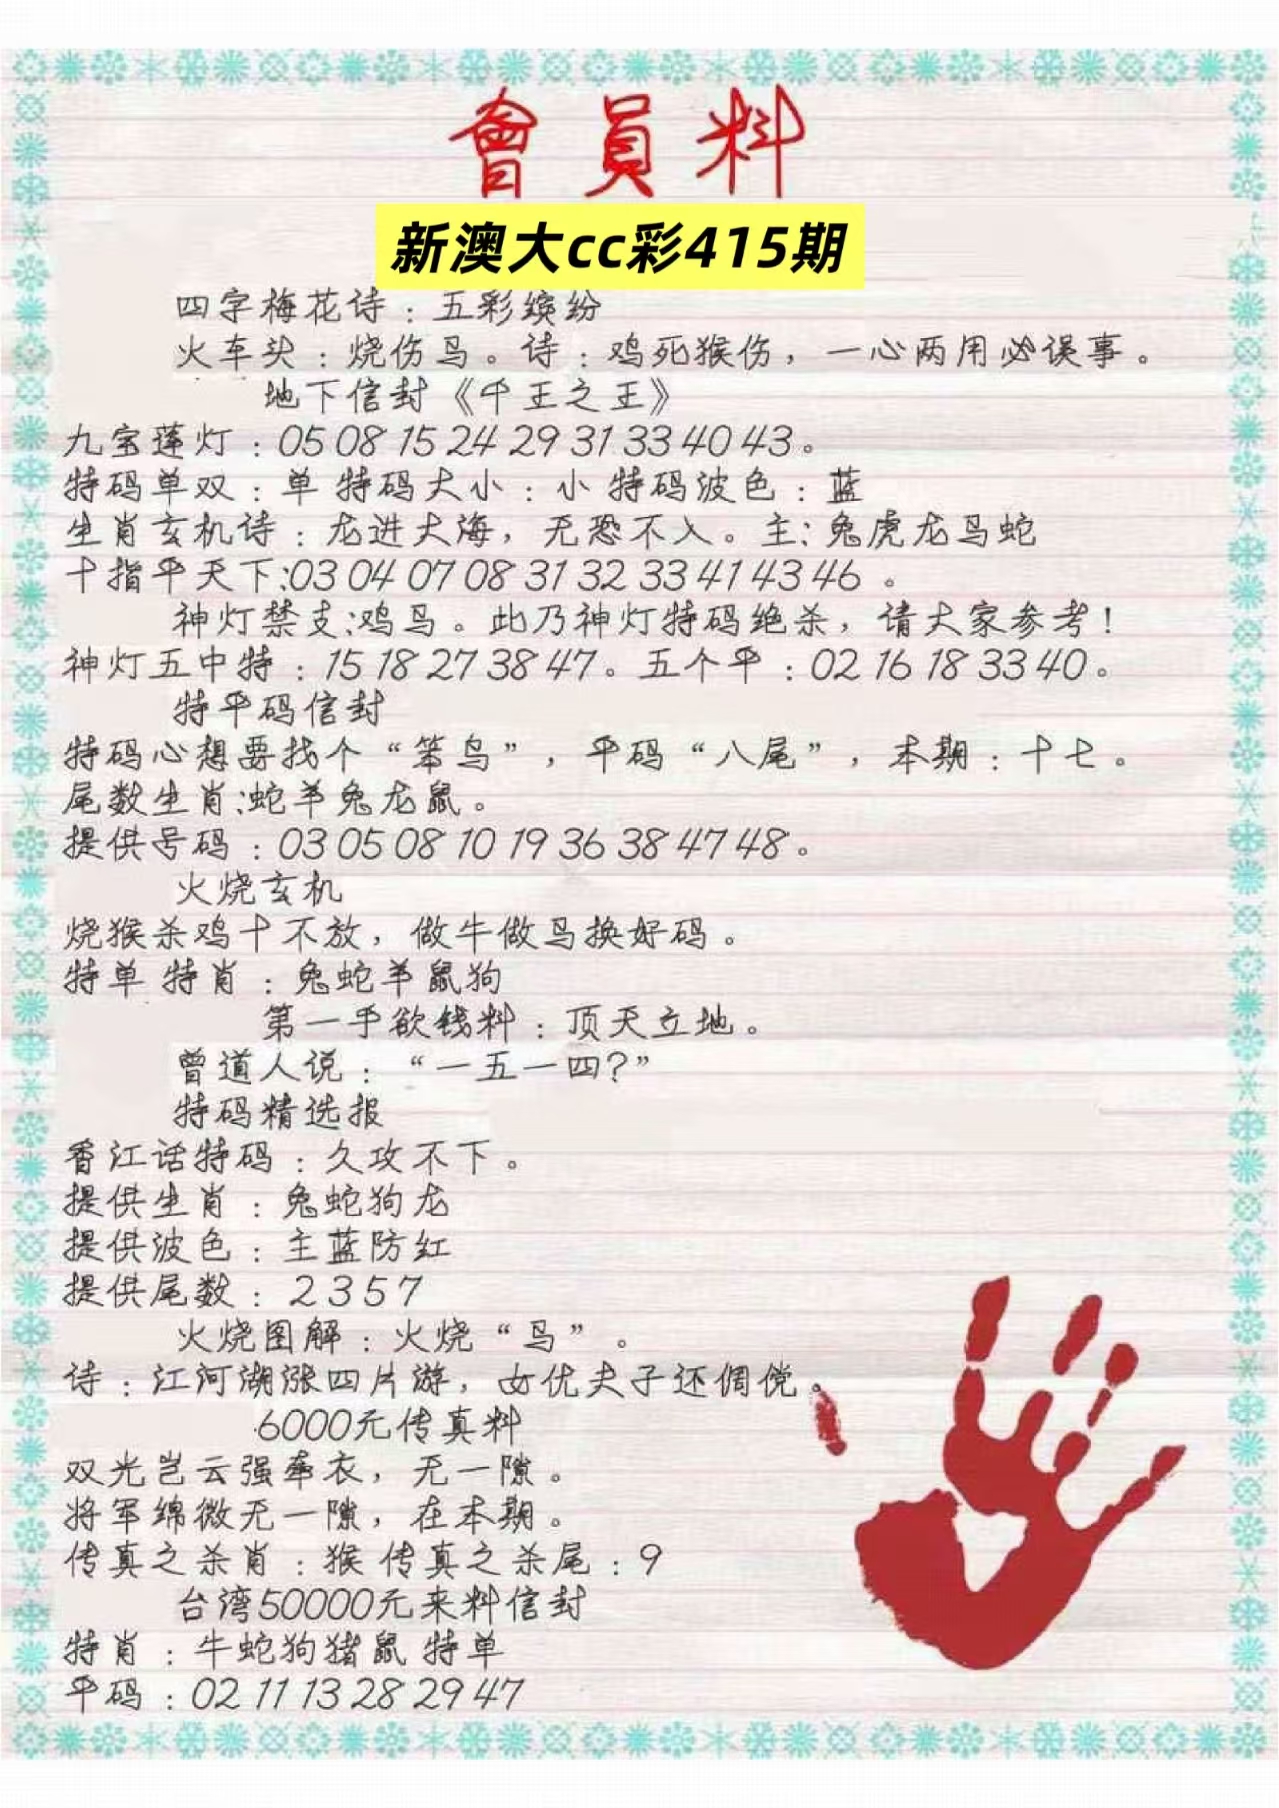 會員料
新澳大cc彩415期
四字梅花诗：五彩缤纷
火车头：烧伤马。诗：鸡死猴伤，一心两用必误事。
地下信封《千王之王》
九宝莲灯：05 08 15 24 29 31 33 40 43。
特码单双：单 特码大小：小 特码波色：蓝
生肖玄机诗：龙进大海，无恐不入。主：兔虎龙马蛇
十指平天下:03 04 07 08 31 32 33 41 43 46 。
神灯禁支:鸡马。此乃神灯特码绝杀，请大家参考！
神灯五中特：15 18 27 38 47。五个平：02 16 18 33 40。
特平码信封
特码心想要找个“笨鸟”，平码“八尾”，本期：十七。
尾数生肖:蛇羊兔龙鼠。
提供号码：03 05 08 10 19 36 38 47 48。
火烧玄机
烧猴杀鸡十不放，做牛做马换好码。
特单 特肖：兔蛇羊鼠狗
第一手欲钱料：顶天立地。
曾道人说：“一五一四？”
特码精选报
香江话特码：久攻不下。
提供生肖：兔蛇狗龙
提供波色：主蓝防红
提供尾数：2 3 5 7
火烧图解：火烧“鸟”。
诗：江河湖涨四片游，女优夫子还倜傥。
6000元传真料
双光岂云强牵衣，无一隙。
将军绵微无一隙，在本期。
传真之杀肖：猴 传真之杀尾：9
台湾50000元来料信封
特肖：牛蛇狗猪鼠 特单
平码：02 11 13 28 29 47